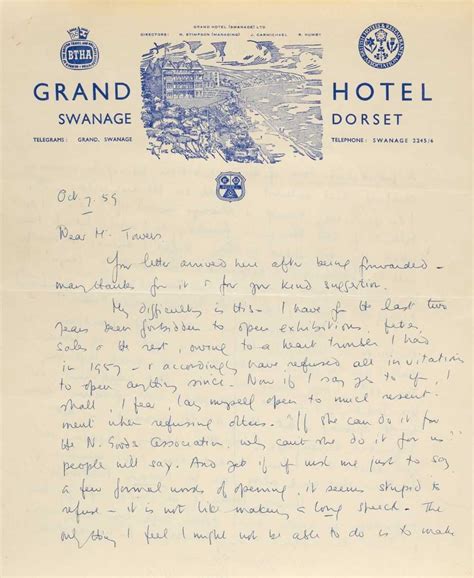 GRAND HOTEL (SWANAGE) LTD
DIRECTORS: H. STIMPSON (MANAGING) J. CARMICHAEL R. HUMBY
BTHA
GRAND HOTEL
SWANAGE DORSET
TELEGRAMS: GRAND, SWANAGE TELEPHONE: SWANAGE 2245/6
Oct. 7. 59
Dear Mr Towers
Your letter arrived here after being forwarded –
many thanks for it & for your kind suggestion.
My difficulty is this – I have for the last two
years been forbidden to open exhibitions, fetes,
sales & the rest, owing to a heart trouble I had
in 1957 – & accordingly have refused all invitations
to open anything since. Now if I say yes to you, I
shall, I fear, lay myself open to much resent-
ment when refusing others. "If she can do it for
the N. Goods Association, why can't she do it for us"
people will say. And yet if you want me just to say
a few formal words of opening, it seems stupid to
refuse – it is not like making a long speech. The
only thing I feel I might not be able to do is to make